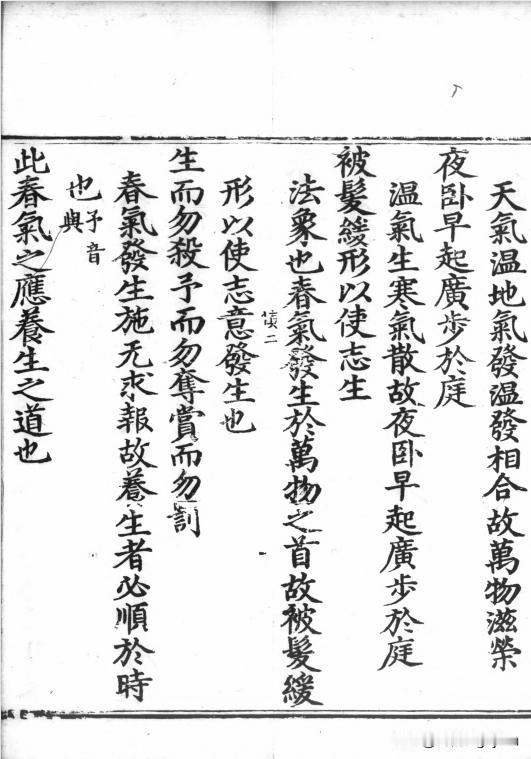 天氣温地氣發温發相合故萬物滋榮
夜卧早起廣步於庭
温氣生寒氣散故夜卧早起廣步於庭
被髮緩形以使志生
法象也春氣發生於萬物之首故被髮緩
形以使志意發生也
生而勿殺予而勿奪賞而勿罰
春氣發生施无求報故養生者必順於時
也予音與
此春氣之應養生之道也